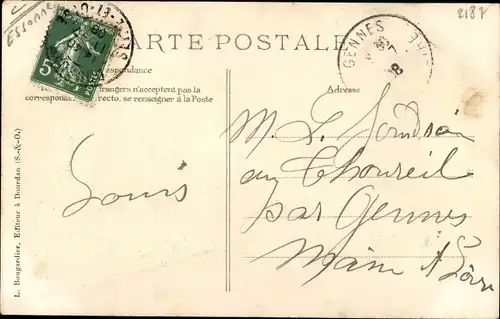 ESSONNE
2187
CARTE POSTALE
GENNES
5
respondance
trangers n'acceptent pas la
correspondan recto, se renseigner à la Poste
Adresse
M. L. Jourdain
au Thoureil
par Gennes
Maine & Loire
Louis
L. Bougardier, Editeur à Dourdan (S.-&-O.)